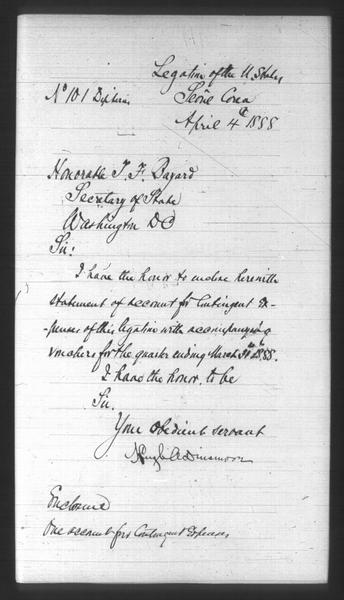 Legation of the U States
Nº 101 Dip Series
Seoul Corea
April 4th 1888
Honorable T. F. Bayard
Secretary of State
Washington DC
Sir:
I have the honor to enclose herewith
statement of account for Contingent Ex-
-penses of this legation with accompanying
vouchers for the quarter ending March 31st 1888.
I have the honor to be
Sir.
Your obedient servant
Hugh A Dinsmore
Enclosure
One account for Contingent Expenses